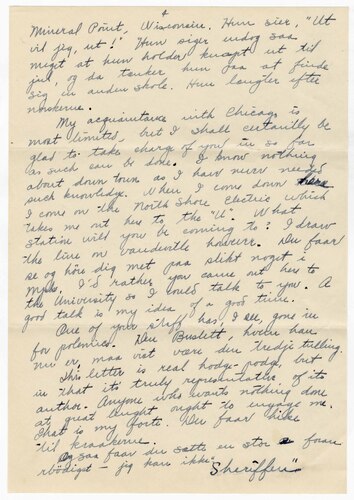 4
Mineral Point, Wisconsin. Hun sier, "Ut
vil jeg, ut!" Hun siger endog saa
meget at hun holder knapt ut til
jul, og da tenker hun paa at finde
sig en anden skole. Hun laugter efter
My acquaintance with Chicago is
most limited, but I shall certainly be
glad to take charge of you in so far
as such can be done. I know nothing
about down town as I have never needed
such knowledge. When I come down
I come on the North Shore Electric which
takes me out her to the "U". What
station will you be coming to? I draw
the line on vaudeville however. Du faar
se og höre dig met paa slikt noget i
Mpls. I'd rather you came out her to
the University so I could talk to you. A
good talk is my idea of a good time.
One of your staff has, I see, gone in
for polemics. Den Buslett, hvem han
nu er, maa vist være den tredje telling.
This letter is real hodge-podge, but
in that its truly representative of its
author. Anyone who wants nothing done
at great length ought to engage me.
That is my forte. Du faar hike
til kraakerne.
Og saa faar du sætte en stor a foran
rbödigst - jeg kan ikke "Sheriffen"